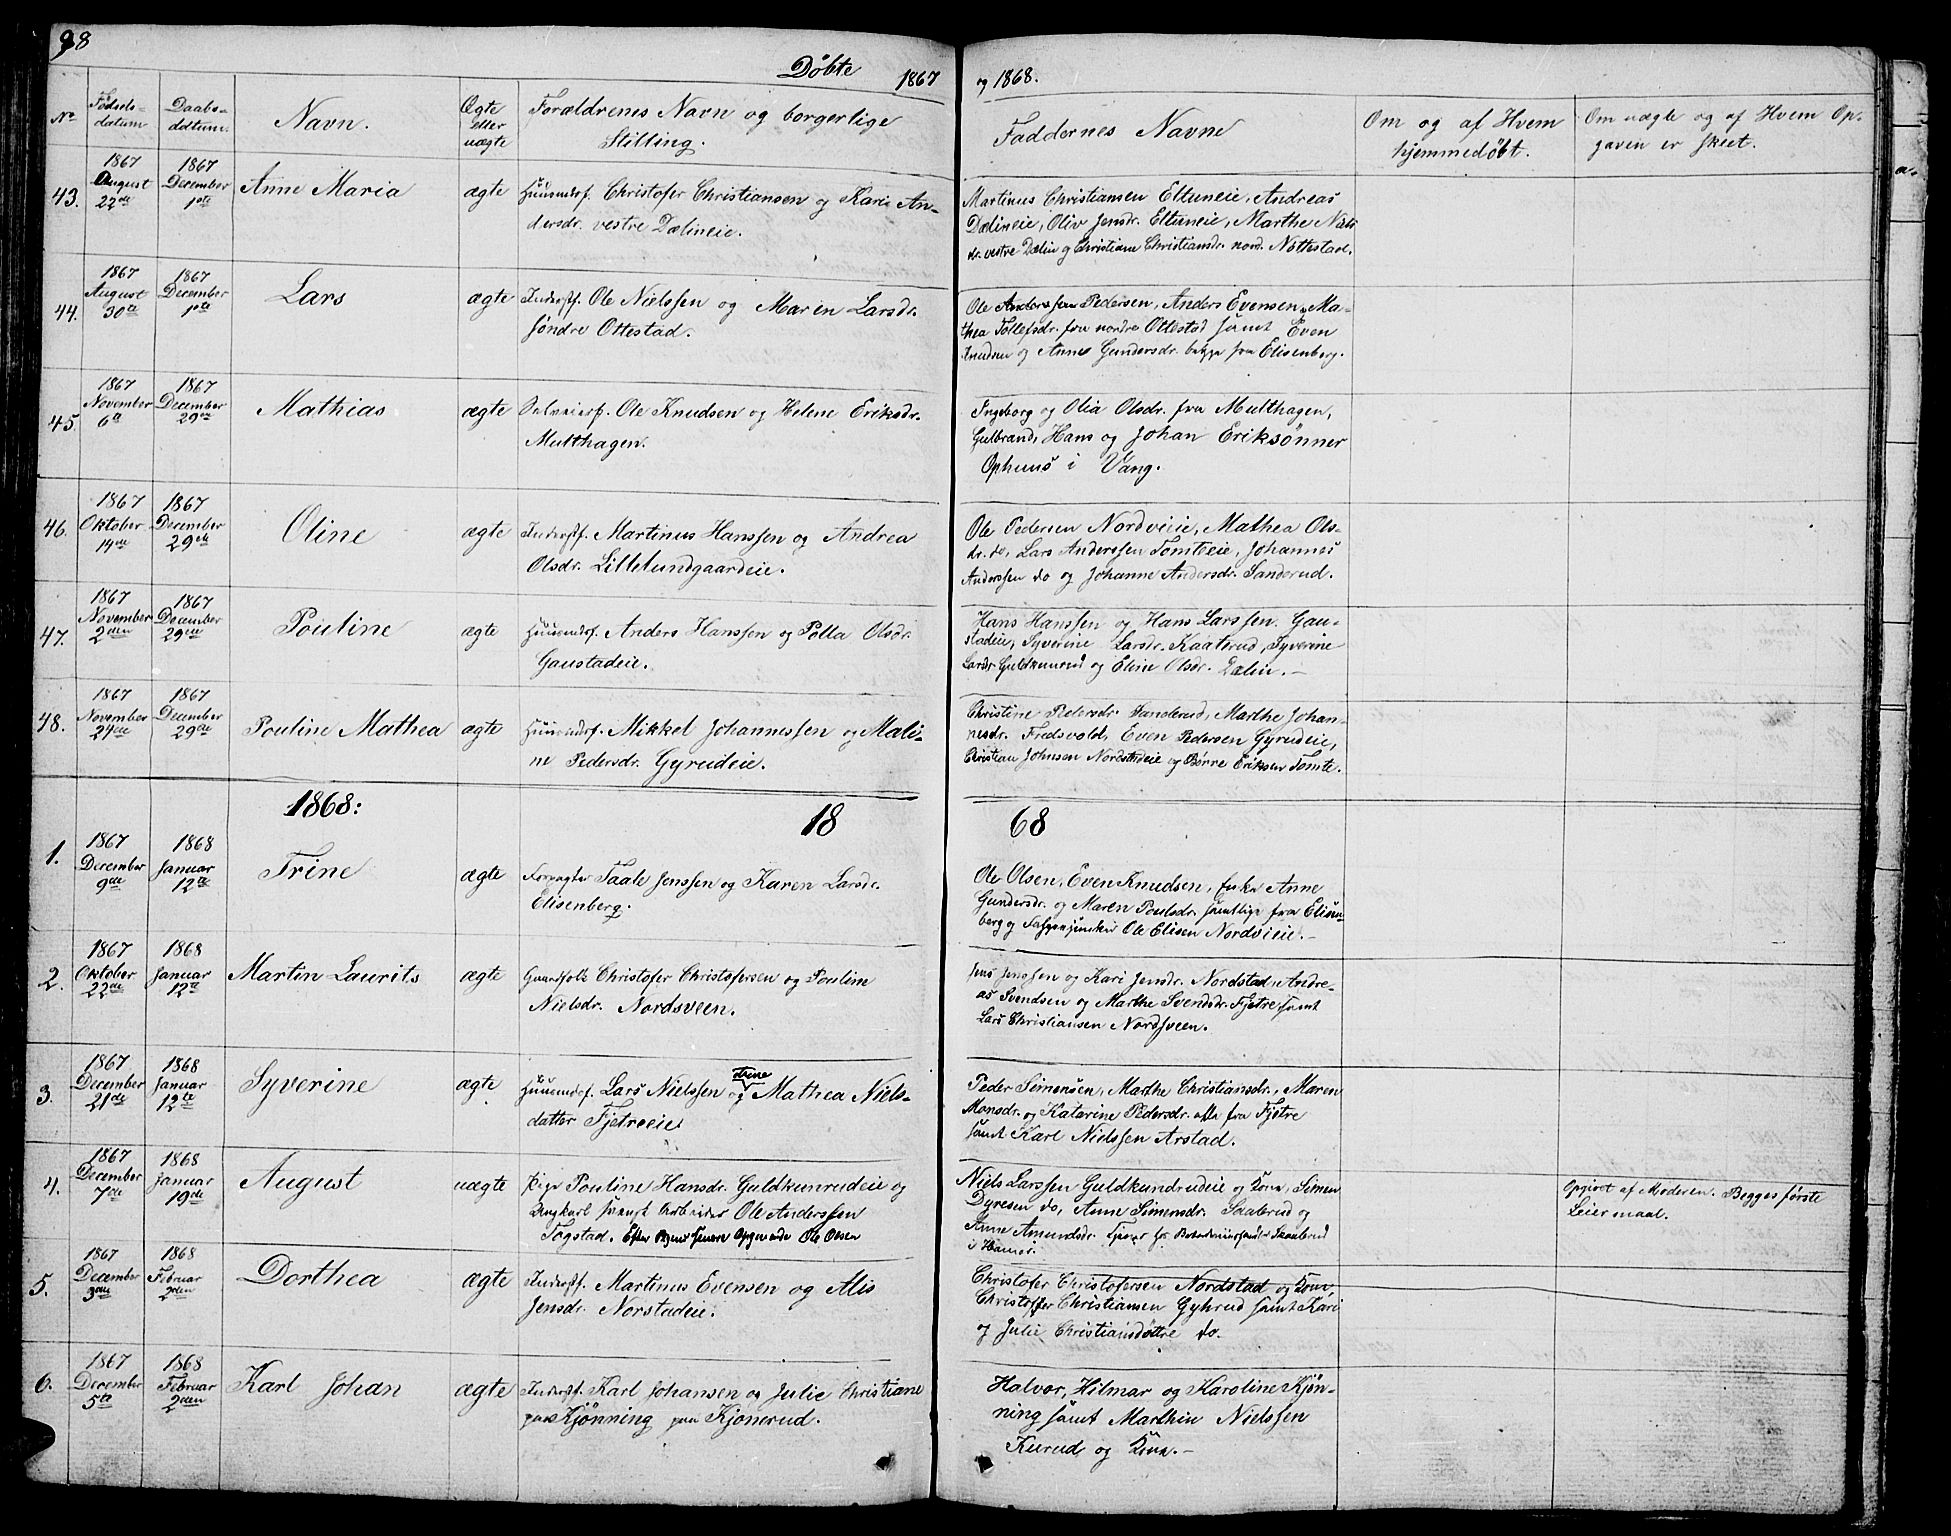 98
Døbte 1867 og 1868.
No
Fødsels-
datum
Daabs-
datum.
Navn.
Ægte
eller
uægte
Forældrenes Navn og borgerlige
Stilling.
Faddernes Navne
Om og af Hvem
hjemmedøbt.
Om uægte og af Hvem Op-
gaven er skeet.
43.
1867
August
22de
1867
December
1ste
Anne Maria
ægte
Huusmdsf. Christofer Christiansen og Kari An-
dersdr. vestre Dælineie.
Martinus Christiansen Eltuneie, Andreas
Dælineie, Oliv Jensdr. Eltuneie, Marthe Niels
dr. vestre Dælin og Christiane Christiansdr. nord. Nøttestad.
44.
1867
August
30te
1867
December
1ste
Lars
ægte
Inderstf. Ole Nielssen og Maren Larsdr.
søndre Ottestad.
Ole Pedersen, Anders Evensen, Ma-
thea Tollefsdr. fra nordre Ottestad samt Even
Knudsen og Anne Gundersdr. begge fra Elisenberg.
45.
1867
November
6te
1867
December
29de
Mathias
ægte
Selveierf. Ole Knudsen og Helene Eriksdr.
Mutthagen.
Ingeborg og Olia Olsdr. fra Mutthagen,
Gulbrand, Hans og Johan Eriksønner
Ophuus i Vang.
46.
1867
Oktober
14de
1867
December
29de
Oline
ægte
Inderstf. Martinus Hanssen og Andrea
Olsdr. Lillelundgaardeie.
Ole Pedersen Nordveieie, Mathea Ols-
dr. do, Lars Anderssen Tomteeie, Johannes
Anderssen do og Johanne Andersdr. Sanderud.
47.
1867
November
2den
1867
December
29de
Pouline
ægte
Huusmdsf. Anders Hanssen og Polla Olsdr.
Gaustadeie.
Hans Hanssen og Hans Larssen Gau-
stadeie, Syverine Larsdr. Kaaterud, Syverine
Larsdr. Guldkunrud og Eline Olsdr. Dælin.
48.
1867
November
24de
1867
December
29de
Pouline Mathea
ægte
Huusmdsf. Mikkel Johannessen og Mali-
ne Pedersdr. Gyrudeie.
Christine Pedersdr. Sanderud, Marthe Johan-
nesdr. Fredsvold, Even Pedersen Gyrudeie,
Christian Johnsen Nordstadeie og Børre Eriksen Tomte.
1868: 18 68
1.
1867
December
9de
1868
Januar
12te
Trine
ægte
Forpagter Taale Jenssen og Karen Larsdr.
Elisenberg.
Ole Olsen, Even Knudsen, Anne
Gundersdr. og Maren Poulsdr. samtlige fra Elisen-
berg og Ole Elisen Nordvieie.
2.
1867
Oktober
22de
1868
Januar
12te
Martin Laurits
ægte
Gaardfolk Christofer Christofersen og Pouline
Nielsdr. Nordsveen.
Jens Jenssen og Kari Jensdr. Nordstad, Andre-
as Svendsen og Marthe Svendsdr. Fjetre samt
Lars Christiansen Nordsveen.
3.
1867
December
21de
1868
Januar
12te
Syverine
ægte
Huusmdsf. Lars Nielssen og Trine Mathea Niels-
datter Fjetreeie.
Peder Simensen, Marthe Christiansdr., Maren
Monsdr. og Katarine Pedersdr. alle fra Fjetre
samt Karl Nielssen Arstad.
4.
1867
December
7de
1868
Januar
19de
August
uægte
Pige Pouline Hansdr. Guldkunrudeie og
Ungkarl Arbeider Ole Anderssen
Togstad. Efter senere Opgivende Ole Olsen
Niels Larssen Guldkundrudeie og Kone, Simen
Dyresen do, Anne Simensdr. Skaberud og
Anne Amundsdr. Skaberud
i Hamar.
Opgivet af Moderen. Begges første
Leiermaal.
5.
1867
December
3die
1868
Februar
2den
Dorthea
ægte
Inderstf. Martinus Evensen og Alis
Jensdr. Norstadeie.
Christofer Christofersen Nordstad og Kone,
Christoffer Christiansen Gyhrud samt Kari
og Julie Christiansdøttre do.
6.
1867
December
5te
1868
Februar
2den
Karl Johan
ægte
Inderstf. Karl Johansen og Julie Christiane
Kjønning paa Kjonerud.
Halvor, Hilmar og Karoline Kjøn-
ning samt Marthin Nielssen
Kurud og Kone.